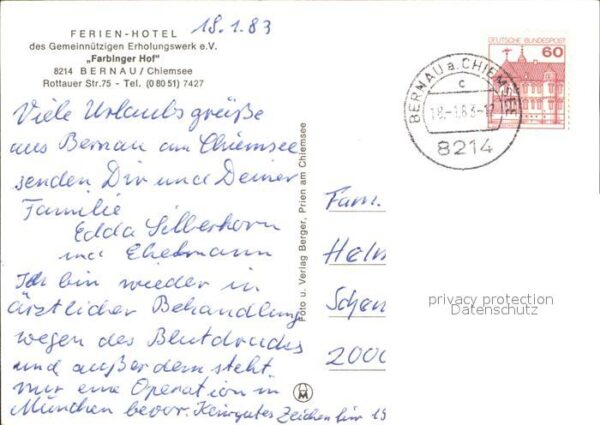 18.1.83
FERIEN-HOTEL
des Gemeinnützigen Erholungswerk e.V.
„Farbinger Hof"
8214 BERNAU/Chiemsee
Rottauer Str.75 - Tel. (08051) 7427
Viele Urlaubsgrüße
aus Bernau am Chiemsee
senden Dir und Deiner
Familie
Edda Silberhorn
und Ehemann
Ich bin wieder in
ärztlicher Behandlung
wegen des Blutdrucks
und außerdem steht
mir eine Operation in
München bevor. Kein gutes Zeichen für 19
Foto u. Verlag Berger, Prien am Chiemsee
DEUTSCHE BUNDESPOST
60
BERNAU a. CHIEMSEE
c
18.-1.83-17
8214
Fam.
Helm
Schen
2000
privacy protection
Datenschutz